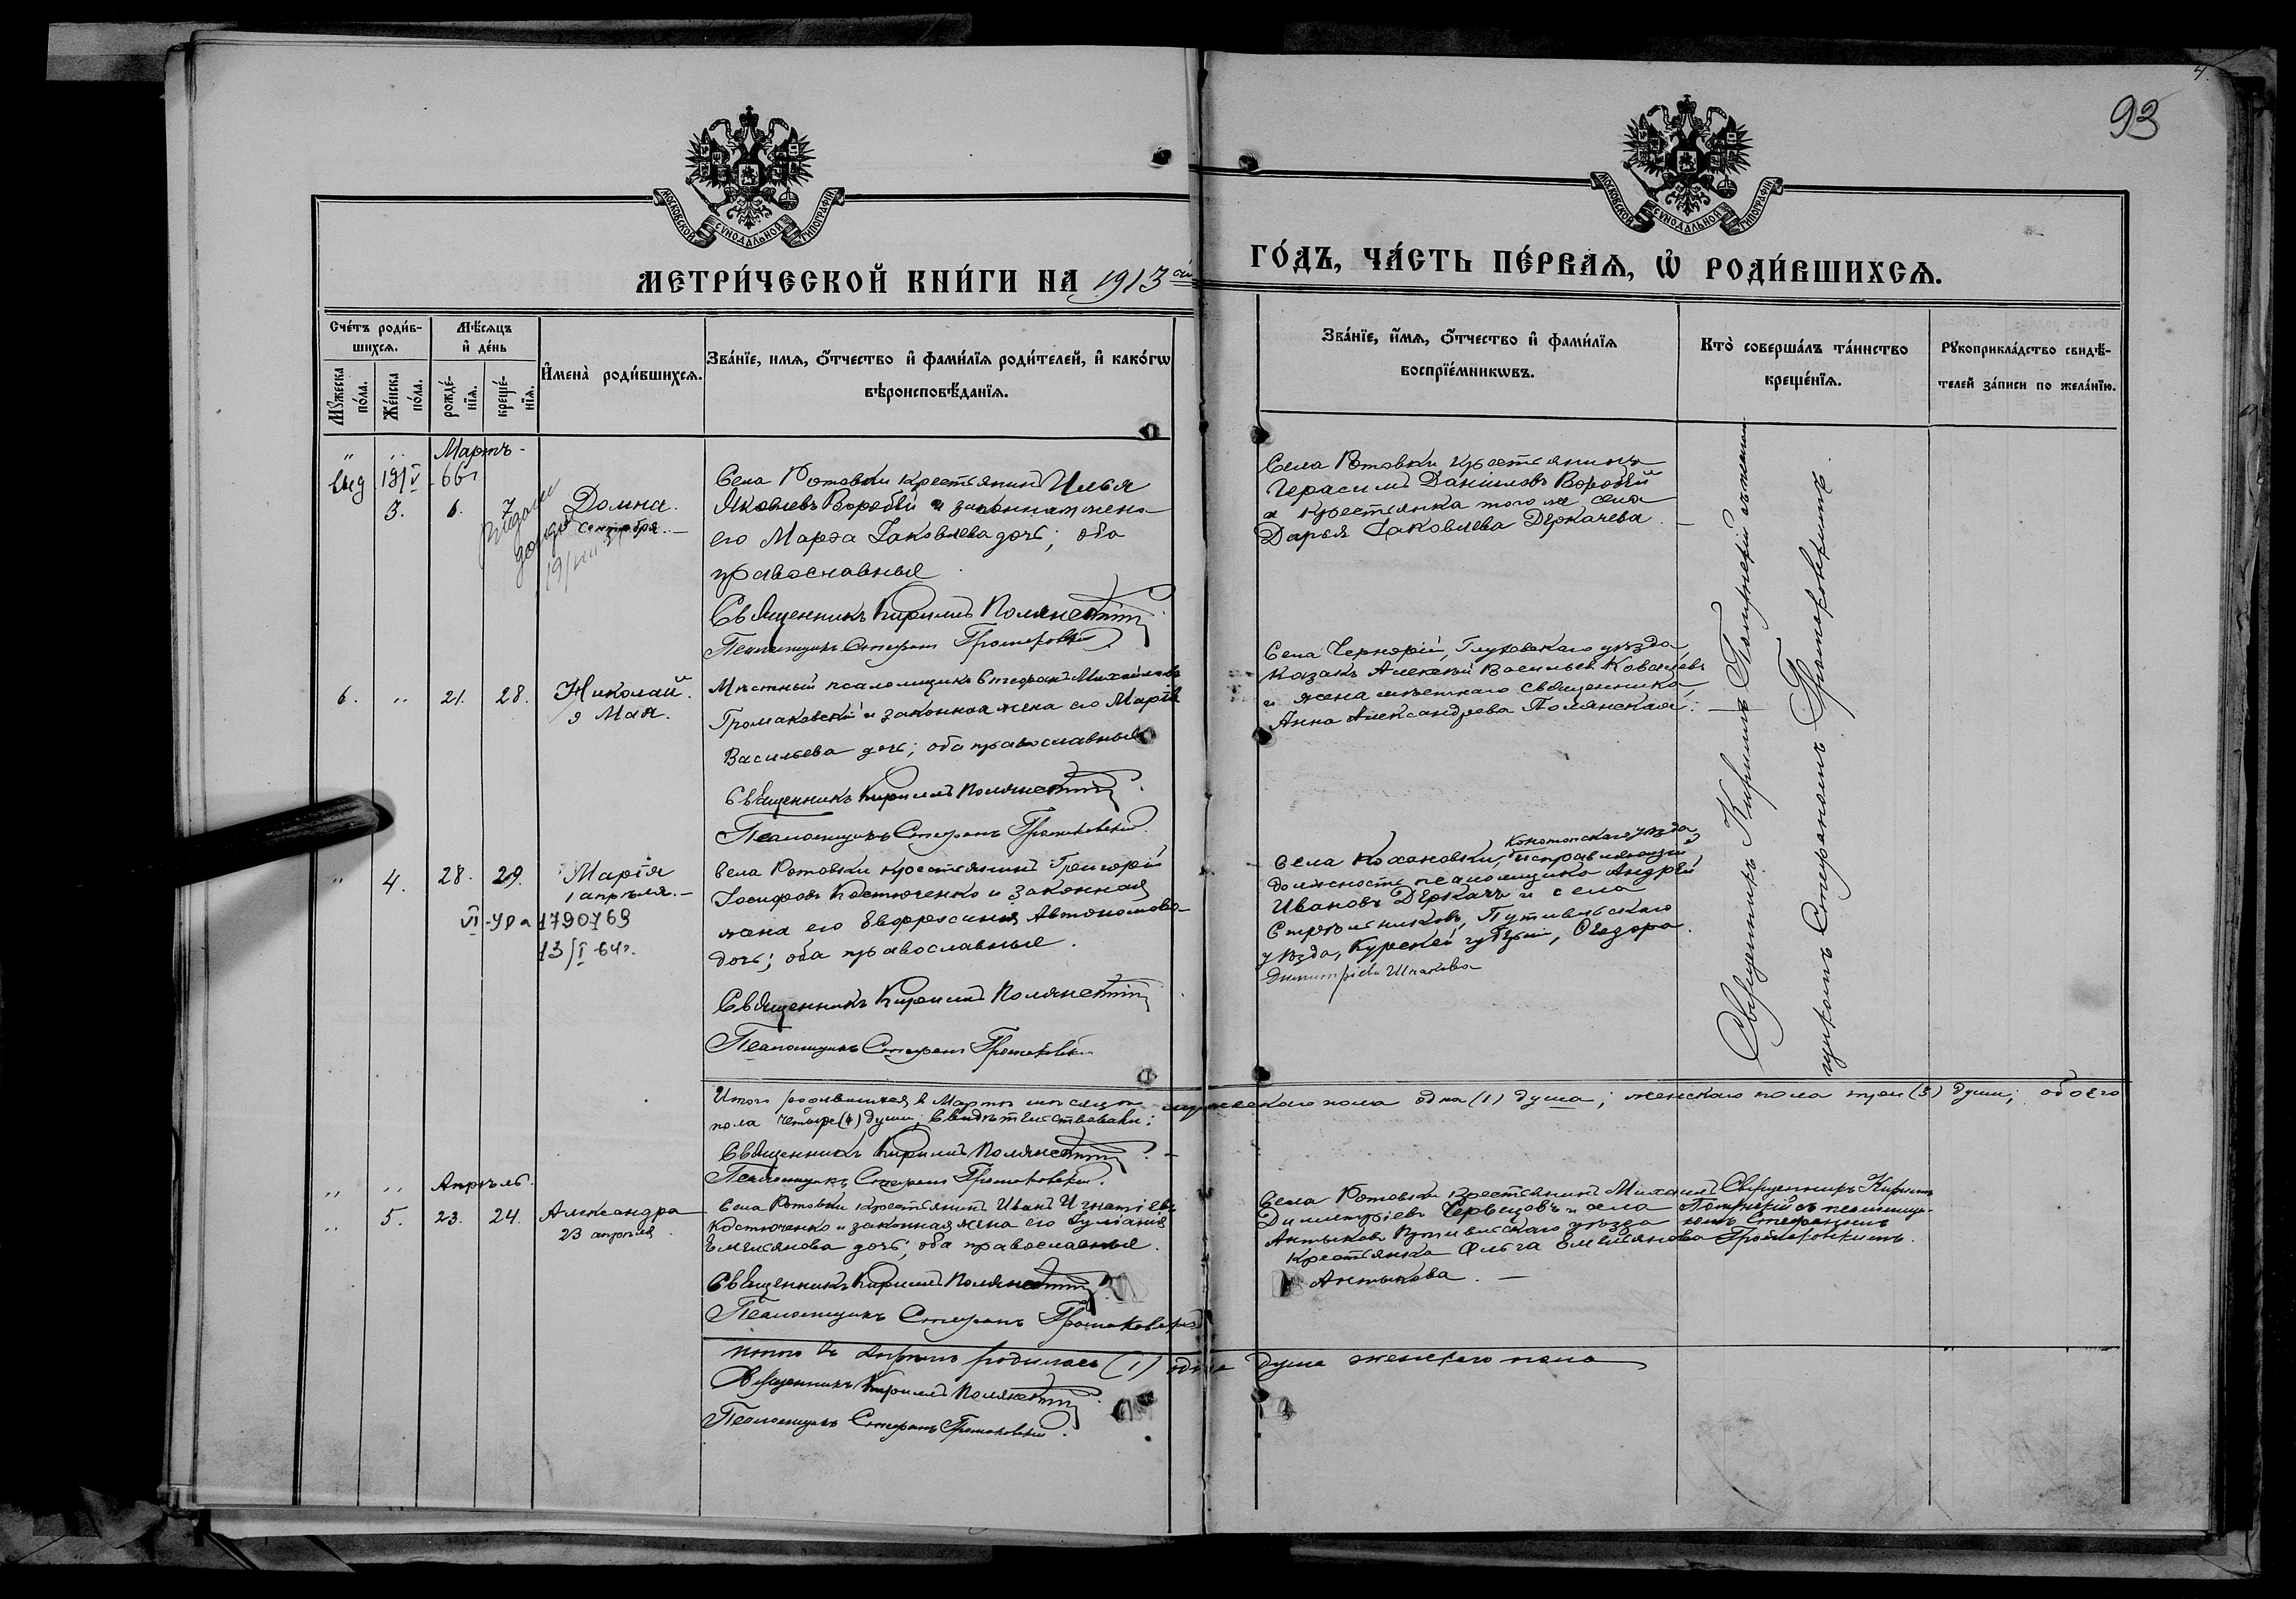 4.
93
МОСКОВСКОЙ СѴНОДАЛЬНОЙ ТИПОГРАФІИ.
МОСКОВСКОЙ СѴНОДАЛЬНОЙ ТИПОГРАФІИ.
МЕТРИ́ЧЕСКОЙ КНИ́ГИ НА 1913 ый
ГО́ДЪ, ЧА́СТЬ ПЕ́РВАѦ, Ѡ҆ РОДИ́ВШИХСѦ.
Сче́тъ роди́в-
шихсѧ.
Мѣ́сѧцъ
и҆ де́нь
Мꙋ́жеска по́ла.
Же́нска по́ла.
рожде́-
нїѧ.
креще́-
нїѧ.
И҆мена̀ роди́вшихсѧ.
Зва́нїе, имѧ, ѻ҆́тчество и҆ фами́лїѧ роди́телей, и҆ како́гѡ
вѣроисповѣ́данїѧ.
Зва́нїе, и҆́мѧ, ѻ҆́тчество и҆ фами́лїѧ
воспрїе́мникѡвъ.
Кто̀ соверша́лъ та́инство
креще́нїѧ.
Рꙋкоприкла́дство свидѣ́-
телей за́писи по жела́нїю.
" " Мартъ.
вид 19/V 66г
3. 6. 7. Домна.
Сентября.
Села Ротовки крестьянинъ Илья
Яковлевъ Воробей и законная жена
его Марѳа Іаковлева дочь; оба
православные.
Священникъ Кириллъ Полянскій
Псаломщикъ Стефанъ Громаковскій
Села Ротовки крестьянинъ
Герасимъ Даниловъ Воробей
и крестьянка того же села
Дарья Іаковлева Деркачева.
6. " 21. 28. Николай.
9 Мая.
Мѣстный псаломщикъ Стефанъ Михайловъ
Громаковскій и законная жена его Марія
Васильева дочь; оба православные
Священникъ Кириллъ Полянскій
Псаломщикъ Стефанъ Громаковскій.
Села Чернорій, Глуховскаго уѣзда,
казакъ Алексѣй Васильевъ Ковалевъ
и жена мѣстнаго священника
Анна Александрова Полянская.
" 4. 28. 29. Марія
1 апрѣля.
VI-УРа 1790769
13/I-64г.
Села Ротовки крестьянинъ Григорій
Іосифовъ Костюченко и законная
жена его Евфросинія Автономова
дочь; оба православные.
Священникъ Кириллъ Полянскій
Псаломщикъ Стефанъ Громаковскій
Села Кохановки, Конотопскаго уѣзда, исправляющій
должность псаломщика Андрей
Ивановъ Деркачъ и села
Стрѣльниковъ, Путивльскаго
уѣзда, Курской губерніи, Ѳеодора
Димитріева Шпакова
Священникъ Кириллъ Полянскій съ псалом-
щикомъ Стефаномъ Громаковскимъ.
Итого родившихся в Мартѣ мѣсяцѣ мужескаго пола одна (1) душа; женскаго пола три (3) души; обоего
пола четыре (4) души; Свидѣтельствовали:
Священникъ Кириллъ Полянскій
Псаломщикъ Стефанъ Громаковскій.
" " Апрѣль.
" 5. 23. 24. Александра
23 апрѣля.
Села Ротовки крестьянинъ Иванъ Игнатіевъ
Костюченко и законная жена его Іуліанія
Емельянова дочь; оба православные.
Священникъ Кириллъ Полянскій
Псаломщикъ Стефанъ Громаковскій
Села Ротовки крестьянинъ Михаилъ
Димитріевъ и села
Путивльскаго уѣзда
крестьянка Ольга Емельянова
Антыкова.
Священникъ Кириллъ
Полянскій съ псаломщи-
комъ Стефаномъ
Громаковскимъ.
Итого въ Апрѣлѣ родилась (1) одна душа женскаго пола
Священникъ Кириллъ Полянскій
Псаломщикъ Стефанъ Громаковскій.